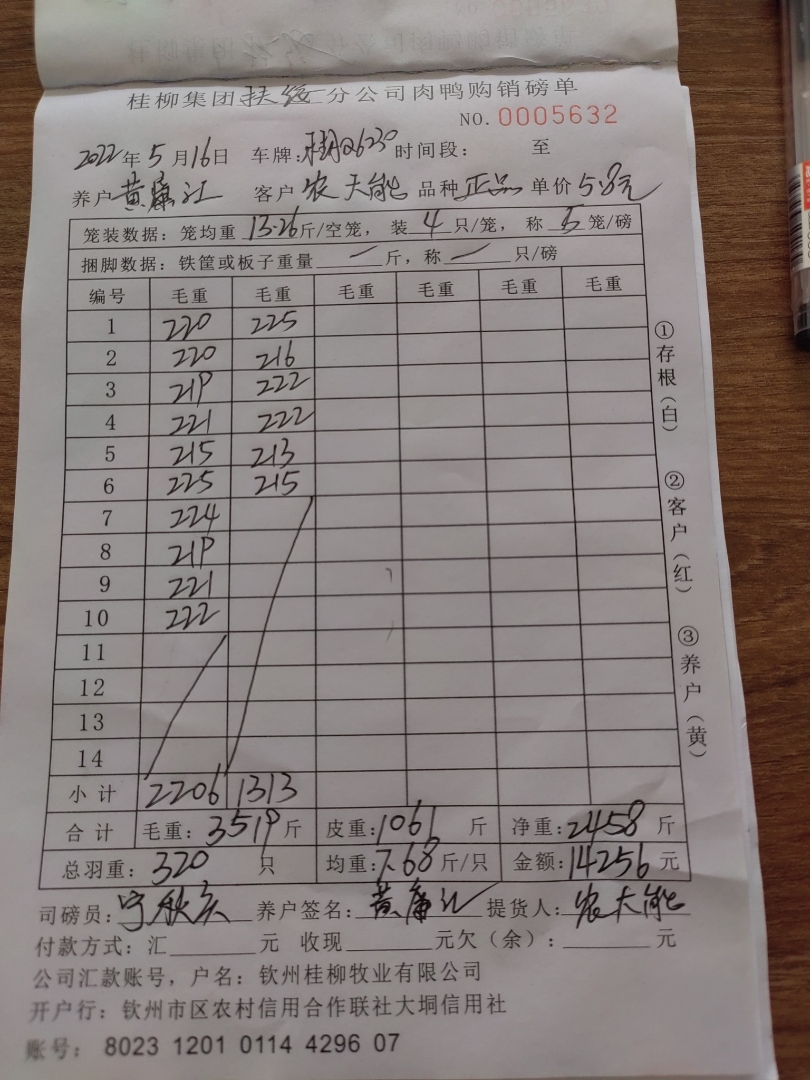 桂柳集团扶绥分公司肉鸭购销磅单
NO. 0005632
2022年5月16日 车牌:桂Q6230 时间段: 至
养户 黄廉江 客户 农天能 品种 正品 单价 5.8元
笼装数据: 笼均重 13.26 斤/空笼, 装 4 只/笼, 称 5 笼/磅
捆脚数据: 铁筐或板子重量 一 斤, 称 一 只/磅
编号 毛重 毛重 毛重 毛重 毛重 毛重
1 220 225
2 220 216
3 219 222
4 221 222
5 215 213
6 225 215
7 224
8 219
9 221
10 222
11
12
13
14
小计 2206 1313
合计 毛重: 3519 斤 皮重: 1061 斤 净重: 2458 斤
总羽重: 320 只 均重: 7.68 斤/只 金额: 14256 元
司磅员: 宁秋 养户签名: 黄廉江 提货人: 农天能
付款方式: 汇 元 收现 元欠(余): 元
公司汇款账号, 户名: 钦州桂柳牧业有限公司
开户行: 钦州市区农村信用合作联社大垌信用社
账号: 8023 1201 0114 4296 07
①存根(白)
②客户(红)
③养户(黄)